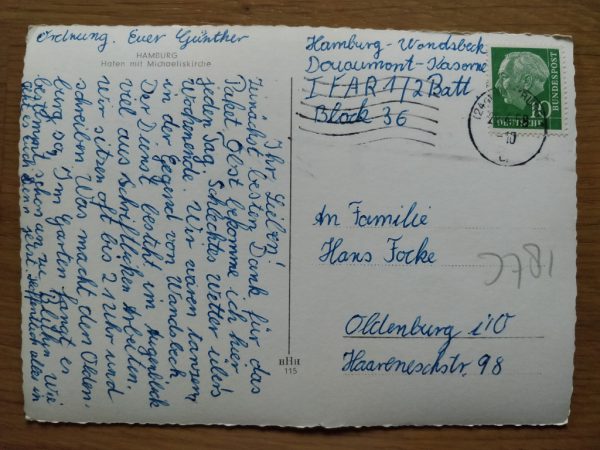 Ordnung. Euer Günther
HAMBURG
Hafen mit Michaeliskirche
Ihr Lieben!
Zunächst besten Dank für das
Paket. Obst bekomme ich hier
jeden Tag. Schlechtes Wetter übers
Wochenende. Wir waren
in der Gegend von Wandsbeck.
Der Dienst besteht im Augenblick
viel aus schriftlichen Arbeiten.
Wir sitzen oft bis 21 Uhr und
schreiben. Was macht denn Olden-
burg so. Im Garten fängt es
bestimmt schon an zu blühen. Wie
Hoffentlich alles in
Hamburg-Wandsbeck
Douaumont-Kaserne
I FAR 1/2 Batt
Block 36
10
DEUTSCHE
BUNDESPOST
An Familie
Hans Focke
Oldenburg i/O
Haareneschstr. 98
HHH
115